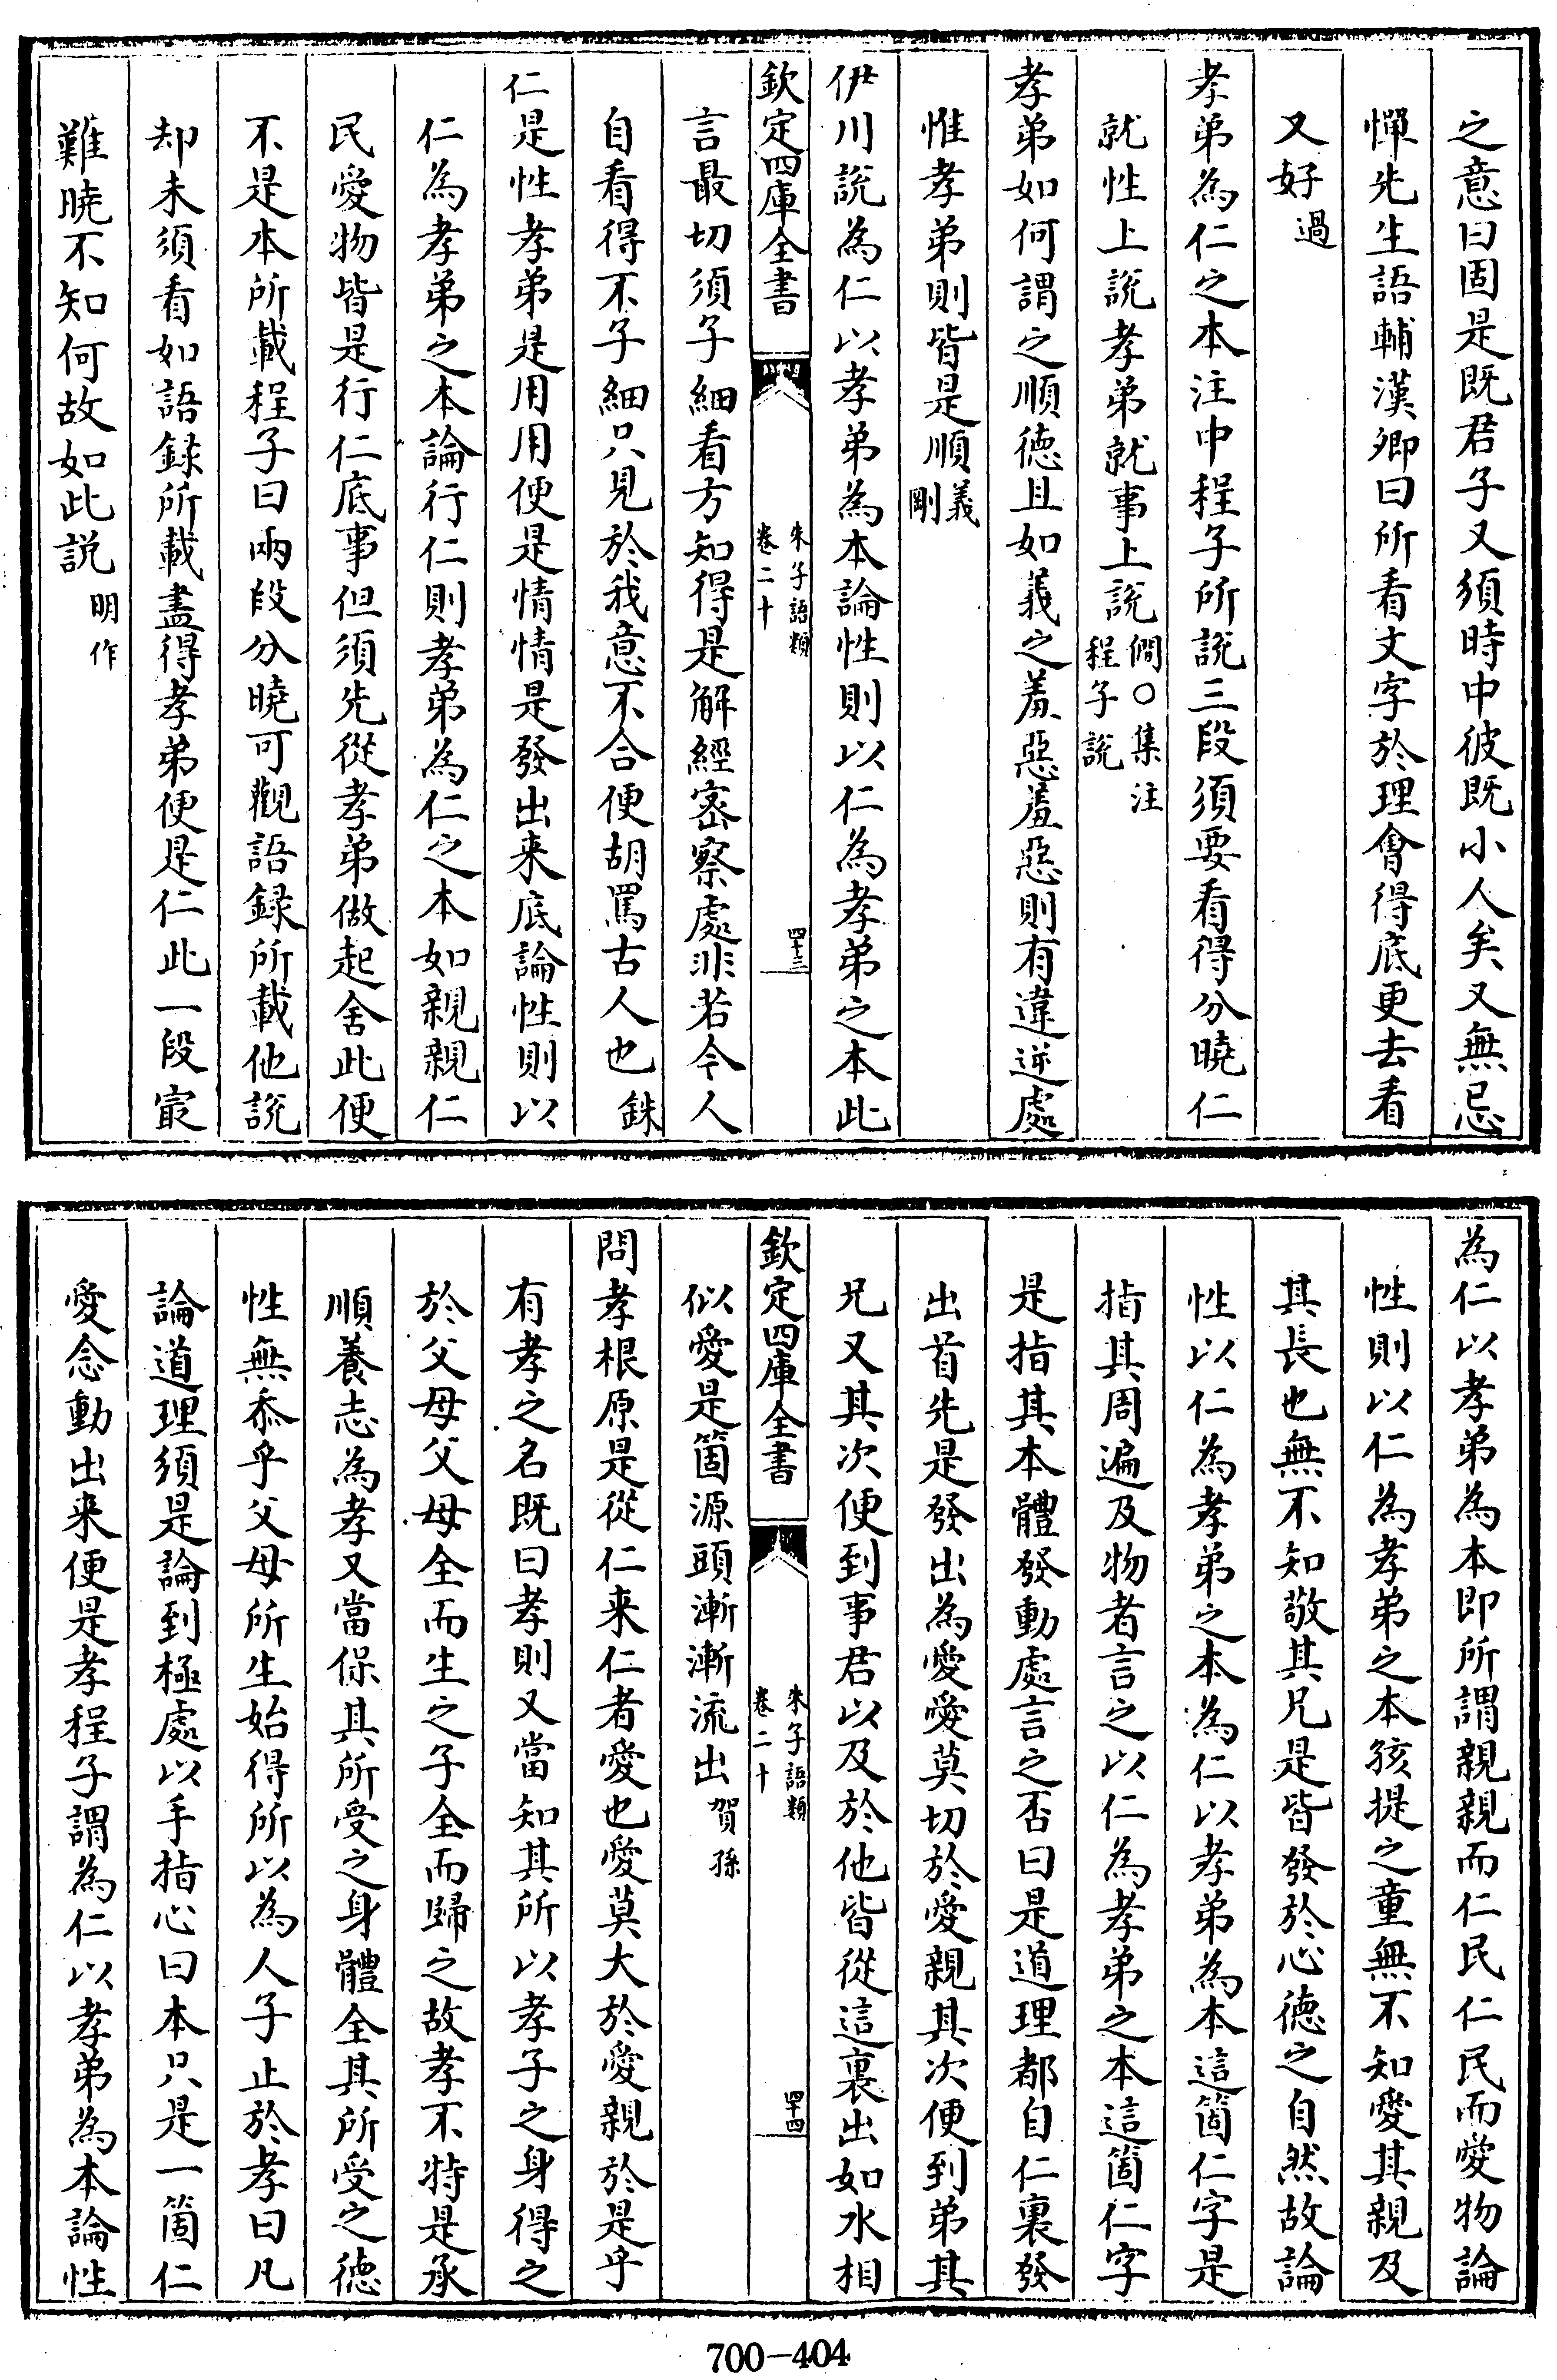 之意曰固是既君子又須時中彼既小人矣又無忌
憚先生語輔漢卿曰所看文字於理會得底更去看
又好過
孝弟為仁之本注中程子所說三段須要看得分曉仁
就性上說孝弟就事上說僩○集注程子說
孝弟如何謂之順德且如義之羞惡羞惡則有違逆處
惟孝弟則皆是順義剛
伊川說為仁以孝弟為本論性則以仁為孝弟之本此
欽定四庫全書
朱子語類
卷二十
四十三
言最切須子細看方知得是解經宻察處非若今人
自看得不子細只見於我意不合便胡罵古人也銖
仁是性孝弟是用用便是情情是發出来底論性則以
仁為孝弟之本論行仁則孝弟為仁之本如親親仁
民愛物皆是行仁底事但須先從孝弟做起舍此便
不是本所載程子曰兩段分曉可觀語録所載他說
却未須看如語録所載盡得孝弟便是仁此一段㝡
難曉不知何故如此説明作
為仁以孝弟為本即所謂親親而仁民仁民而愛物論
性則以仁為孝弟之本孩提之童無不知愛其親及
其長也無不知敬其兄是皆發於心德之自然故論
性以仁為孝弟之本為仁以孝弟為本這箇仁字是
指其周遍及物者言之以仁為孝弟之本這箇仁字
是指其本體發動處言之否曰是道理都自仁裏發
出首先是發出為愛愛莫切於愛親其次便到弟其
兄又其次便到事君以及於他皆從這裏出如水相
欽定四庫全書
朱子語類
卷二十
四十四
似愛是箇源頭漸漸流出賀孫
問孝根原是從仁来仁者愛也愛莫大於愛親於是乎
有孝之名既曰孝則又當知其所以孝子之身得之
於父母父母全而生之子全而歸之故孝不特是承
順養志為孝又當保其所受之身體全其所受之德
性無忝乎父母所生始得所以為人子止於孝曰凡
論道理須是論到極處以手指心曰本只是一箇仁
愛念動出来便是孝程子謂為仁以孝弟為本論性
700-404